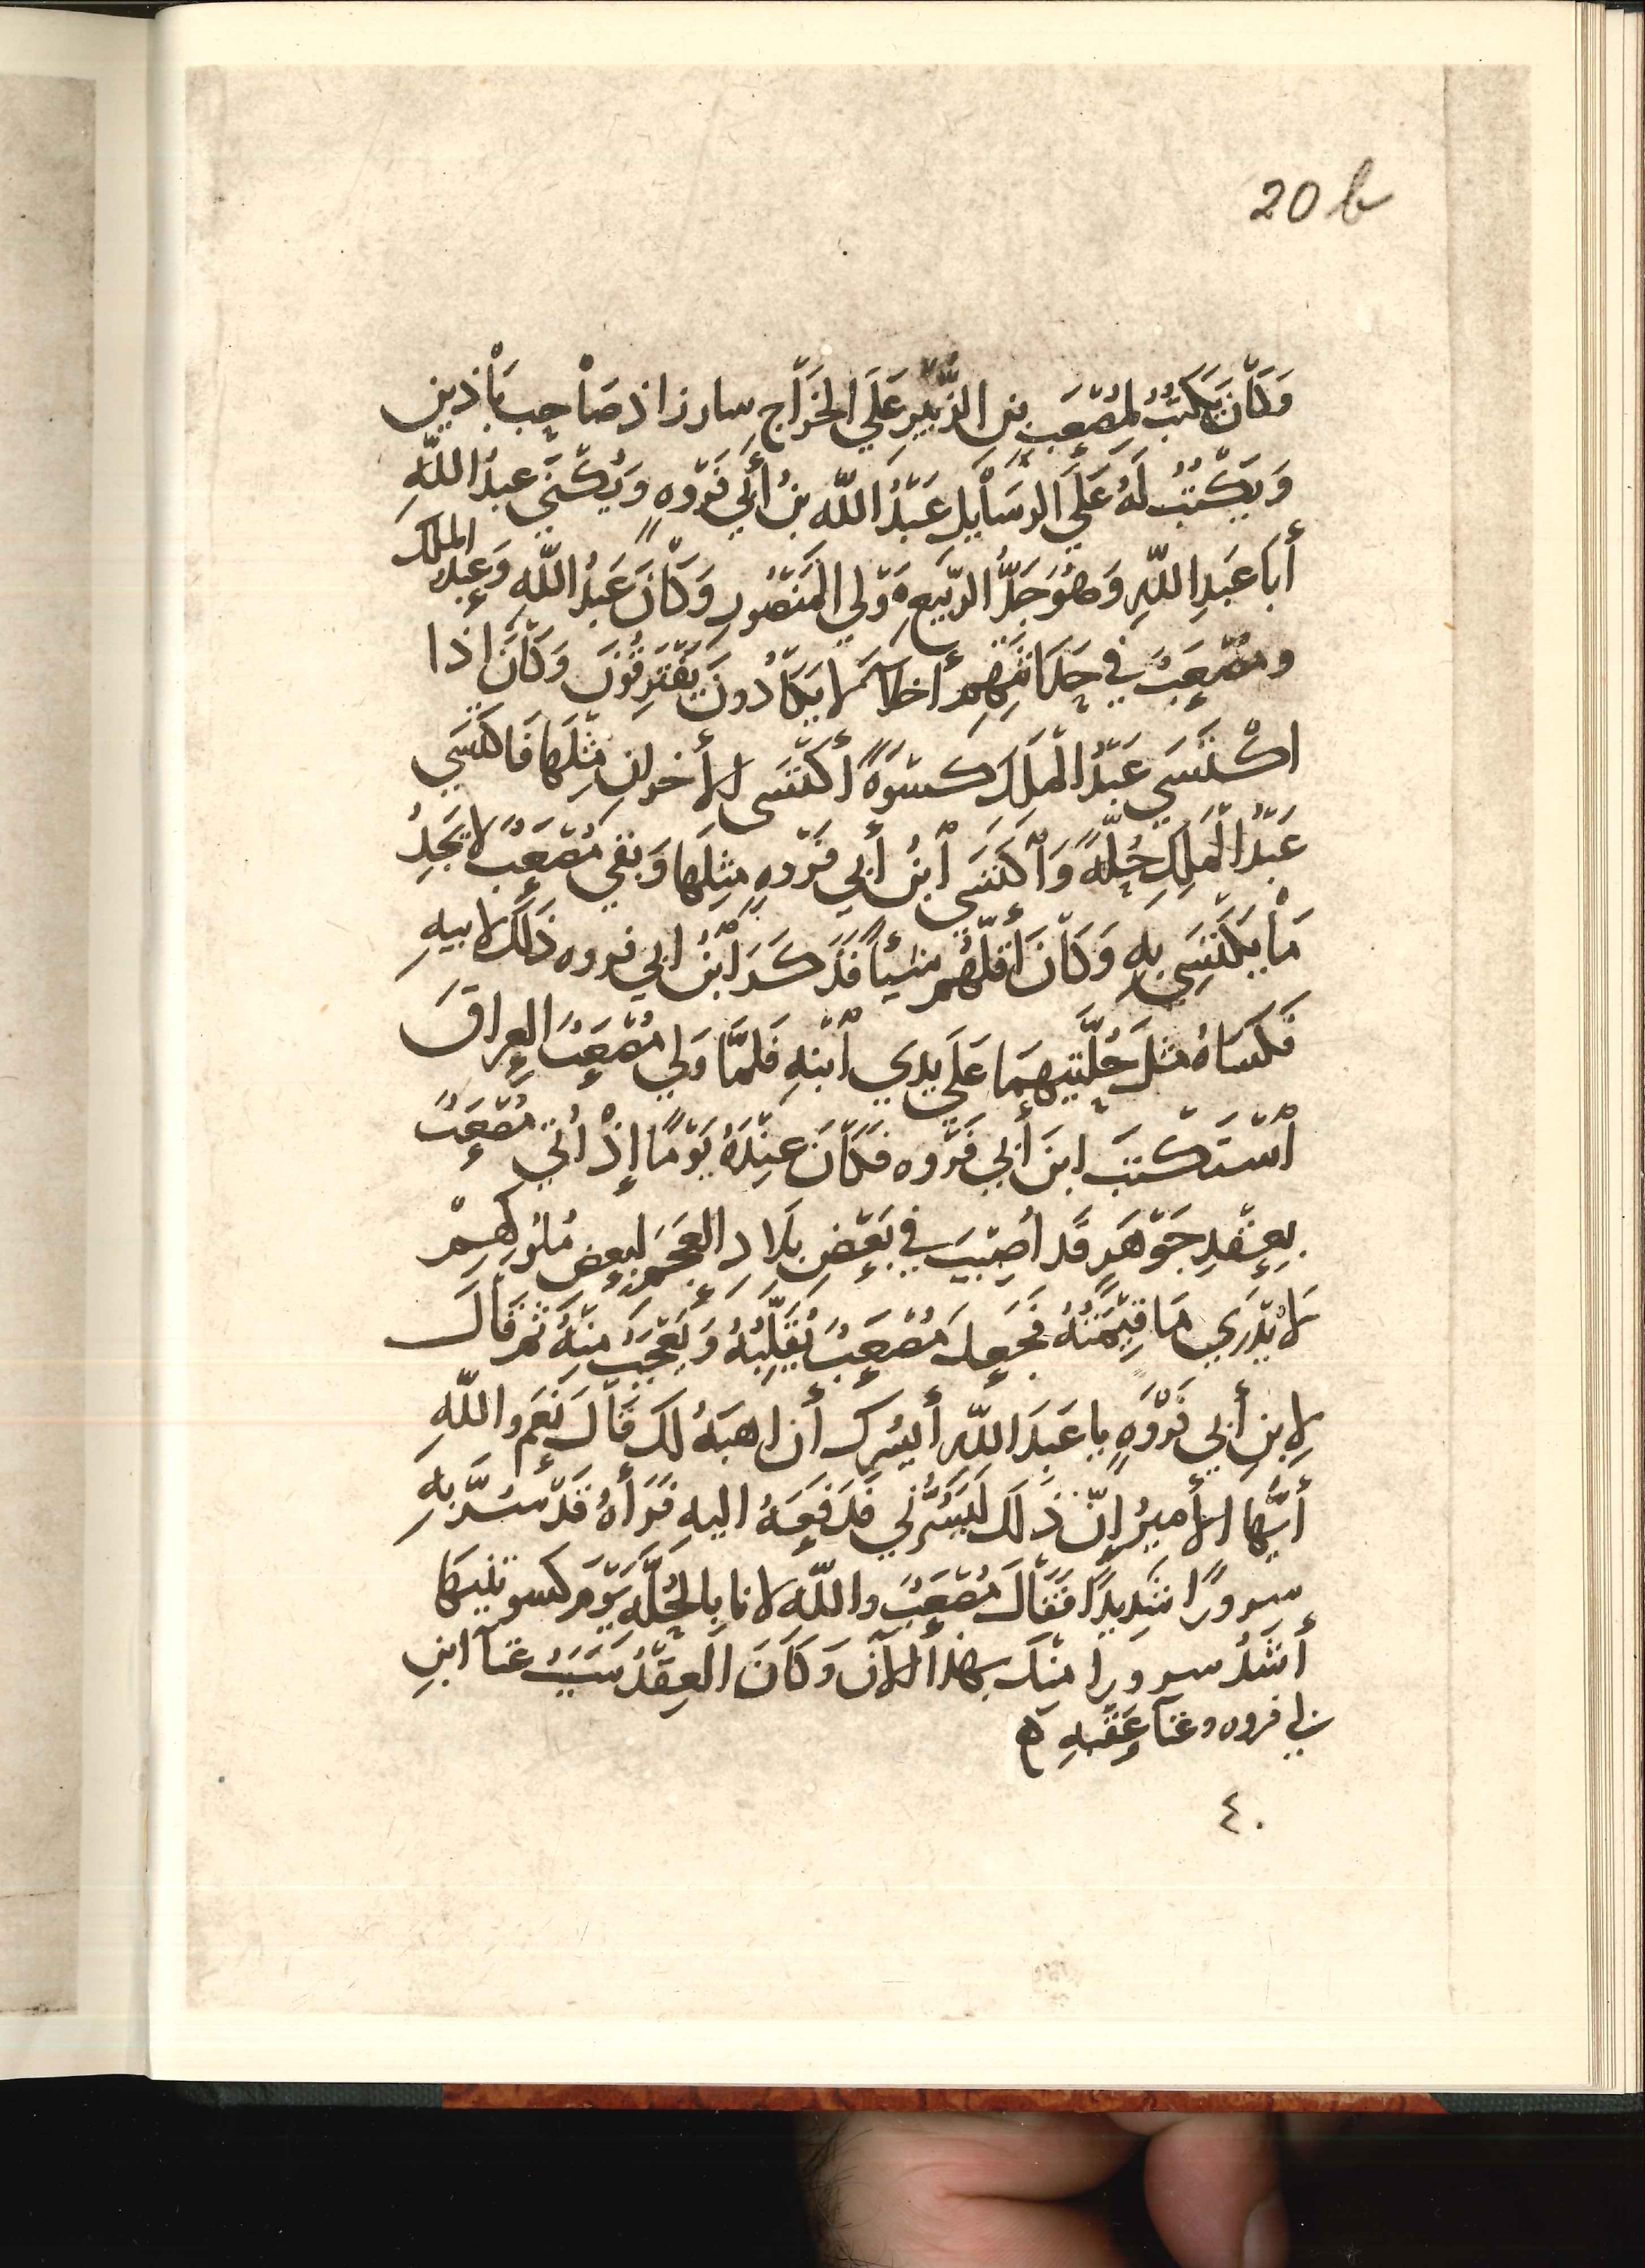 20 b
وَكَانَ يَكتُبُ لِمُصْعَبِ بنِ الزُّبَيْرِ عَلَي الخَرَاجِ سارزاذ صَاحِب بَاذبين
وَيَكْتُبُ لَهُ عَلَي الرسَايِل عَبْدُ اللّه بنُ أَبي فَرْوهٍ وَيُكْني عبدُ اللّهِ
أَبا عَبدِ اللّهِ وَهُوَ جَدُّ الرّبيعِ مَوْلي المَنْصُورِ وَكَانَ عَبدُ اللّهِ وَعبد الملك
ومُصْعَبُ في حِدَاثَتِهِم أخلآء لا يَكَادُونَ يَفْتَرِقُونَ وَكَانَ اذا
اكْتَسَي عَبْدُ الْمَلِكِ كسْوَةً أكتَسَى الأخرانِ مِثْلَهَا فَاكتَسَي
عَبْدُ الْمَلِكِ حُلّةً وَاْكتَسَي اْبنُ أَبي فَرْوهٍ مِثلَها وَبقي مُصْعَبٌ لا يَجِدُ
مَا يَكتَسِي بِهِ وَكَانَ أَقلّهُم شيأً فَذَكَرَ اْبنُ ابي فروه ذَلكَ لابيهِ
فَكسَاهُ مثلَ حُلّتَيهِمَا عَلَي يدي اْبْنهِ فَلَمَّا وَلي مُصْعَبُ العِراقَ
اْسْتَكْتَبَ ابنَ أَبي فَرْوه فَكَانَ عِنْدَهُ يَوْمًا إِذْ اُتي مُصْعَبُ
بِعِقْدِ جَوْهَرٍ قَد أُصِيْبَ في بَعْضِ بِلَادِ العَجَمِ لِبعضِ مُلُوكِهِمْ
لَا يُدْرَي مَا قِيْمَتُهُ فجَعِلَ مُصْعَبُ يُقَلِّبُهُ وَيَعْجَبُ مِنْهُ ثُم قَالَ
لِابنِ أَبي فَرْوَهٍ يا عَبدَ اللّهِ أَيسُرك أن اهبَهُ لك قَالَ نَعَم واللّهِ
أَيّهَا الأميرُ إِنّ ذَلك لَيَسُرُّني فَدَفعَهُ اليهِ فَرَأهُ قَدْ سُرَّ بِهِ
سرورًا شَدِيدًا فَقَالَ مُصْعَبٌ واللّهِ لانا بِالحُلّهِ يَوْمَ كسوتنيهَا
أشَدُّ سرورا مِنكَ بهذا الآن وَكَانَ العِقْدُ سَبَبُ غنآ ابنِ
بي فروه وغنآ عَقبهِ ه
٤٠